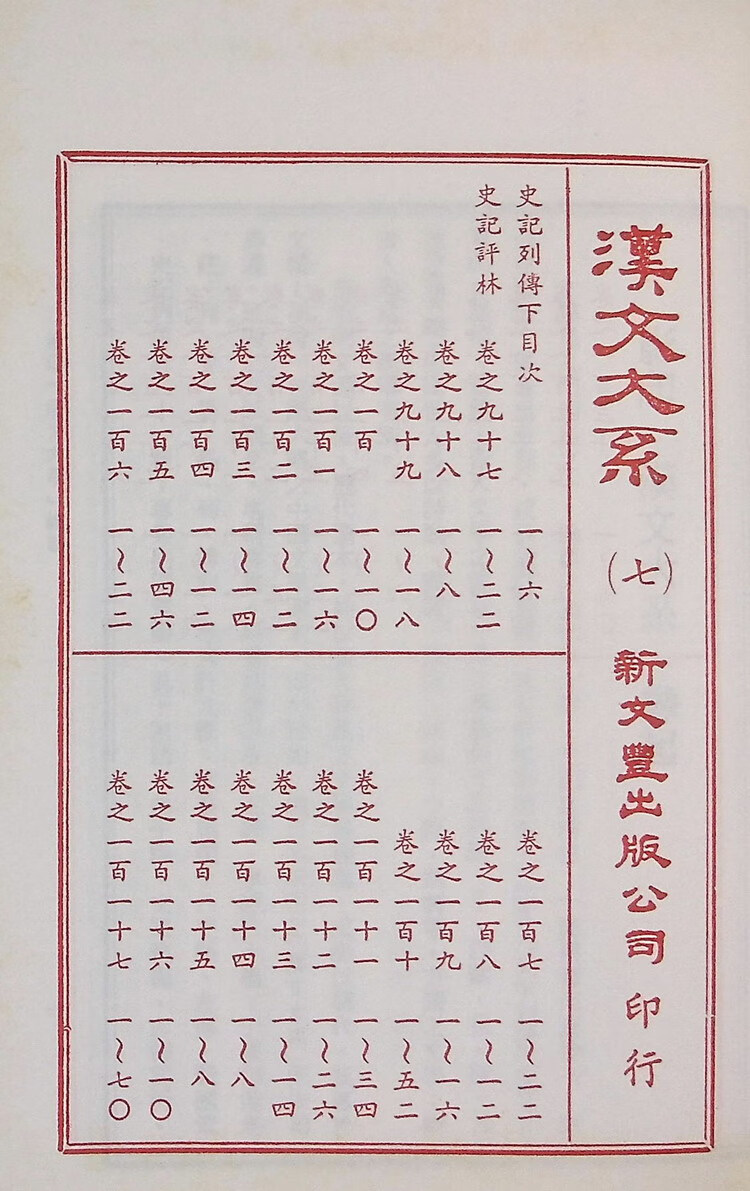 漢文大系 (七) 新文豐出版公司 印行
史記列傳下目次 一～六
史記評林 卷之九十七 一～二二
卷之九十八 一～八
卷之九十九 一～一八
卷之一百 一～一〇
卷之一百一 一～一六
卷之一百二 一～一二
卷之一百三 一～一四
卷之一百四 一～一二
卷之一百五 一～四六
卷之一百六 一～二二
卷之一百七 一～二二
卷之一百八 一～一二
卷之一百九 一～一六
卷之一百十 一～五二
卷之一百十一 一～三四
卷之一百十二 一～二六
卷之一百十三 一～一四
卷之一百十四 一～八
卷之一百十五 一～八
卷之一百十六 一～一〇
卷之一百十七 一～七〇